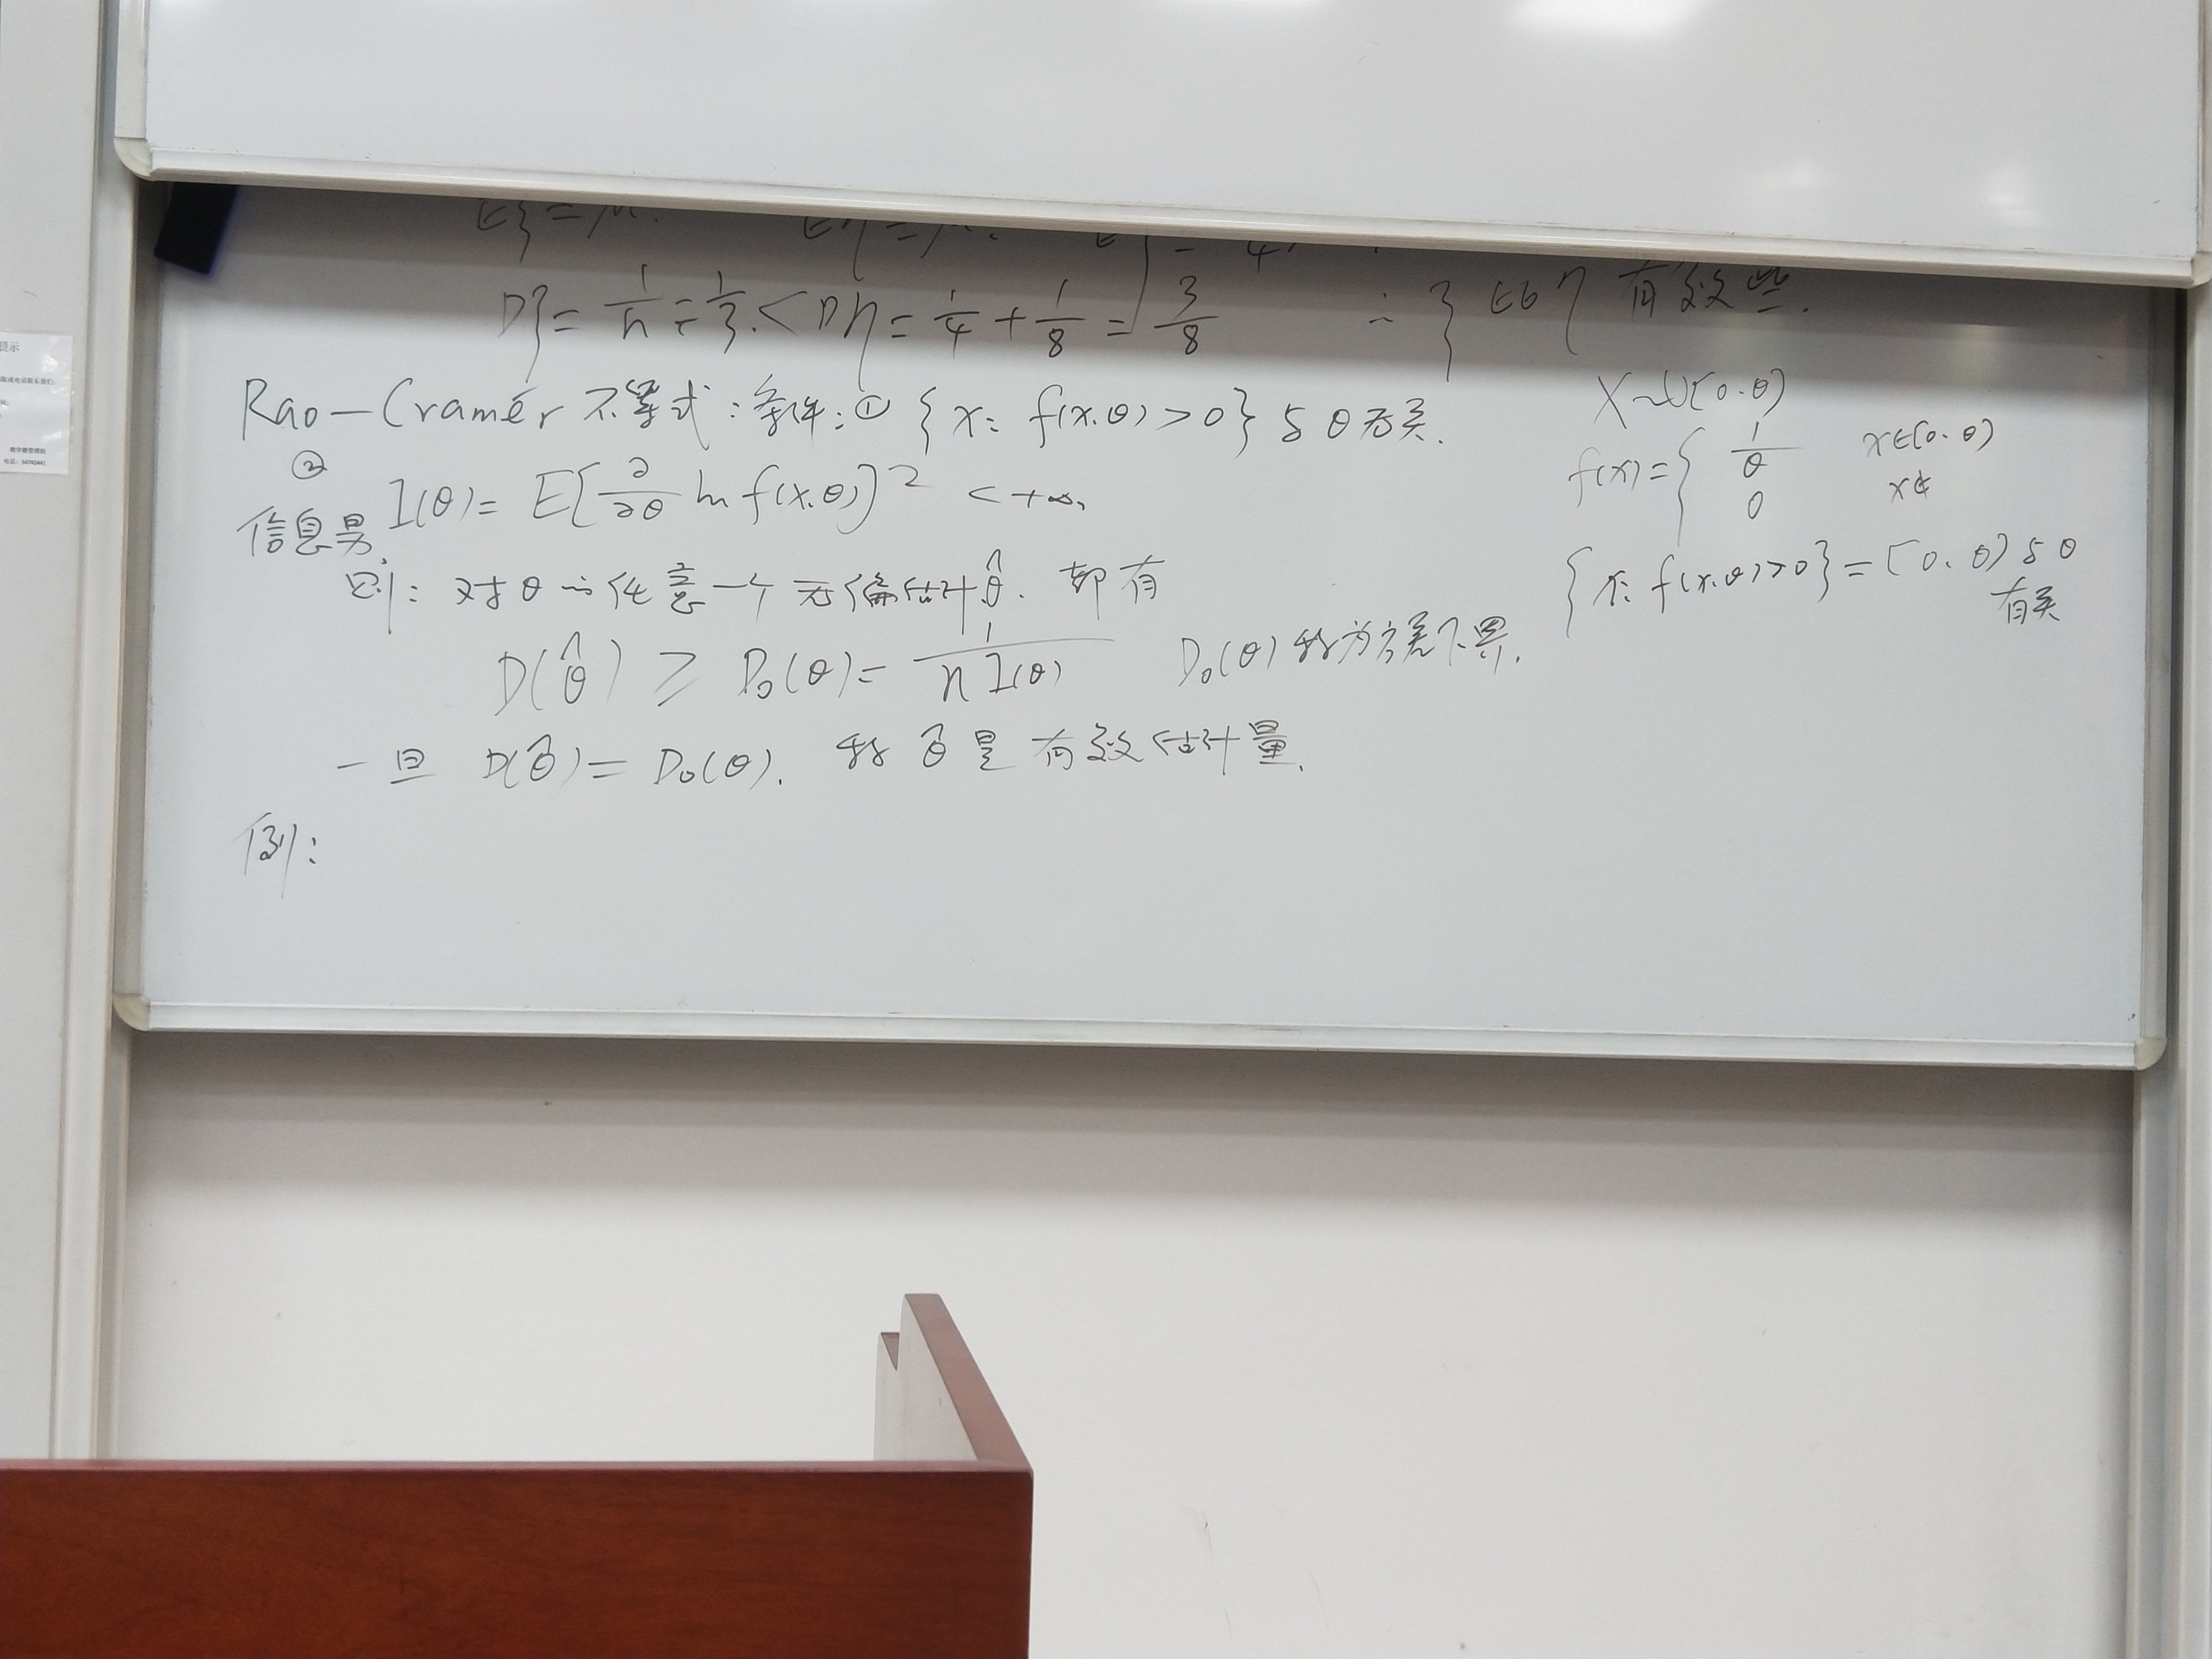 Dξ = 1/n = 1/3 < Dη = 1/4 + 1/8 = 3/8 ∴ ξ 比 η 有效些.
Rao-Cramér 不等式: 条件: ① {x: f(x.θ) > 0} 与 θ 无关.
②
信息量 I(θ) = E[∂/∂θ ln f(x.θ)]² < +∞.
则: 对 θ 的任意一个无偏估计 θ̂. 都有
D(θ̂) ≥ D₀(θ) = 1/(n I(θ)) D₀(θ) 称为方差下界.
一旦 D(θ̂) = D₀(θ). 称 θ̂ 是有效估计量.
例:
X~U[0.θ)
f(x) = { 1/θ x∈[0.θ)
0 x∉
{x: f(x.θ)>0} = [0.θ) 与 θ
有关